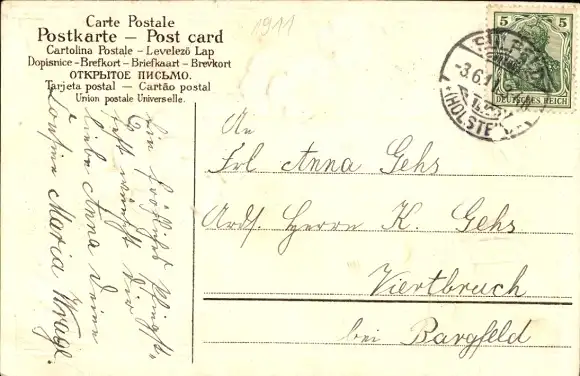 Carte Postale
Postkarte – Post card
Cartolina Postale – Levelező Lap
Dopisnice – Brefkort – Briefkaart – Brevkort
ОТКРЫТОЕ ПИСЬМО.
Tarjeta postal – Cartão postal
Union postale Universelle.
1911
5 5
DEUTSCHES REICH
-3.6.
(HOLSTEIN)
An
Frl Anna Gehs
Adr. Herrn K. Gehs
Viertbruch
bei Bargfeld
Ein fröhliches Pfingst-
fest wünscht Dir
liebe Anna Deine
Cousine Maria Wrage.